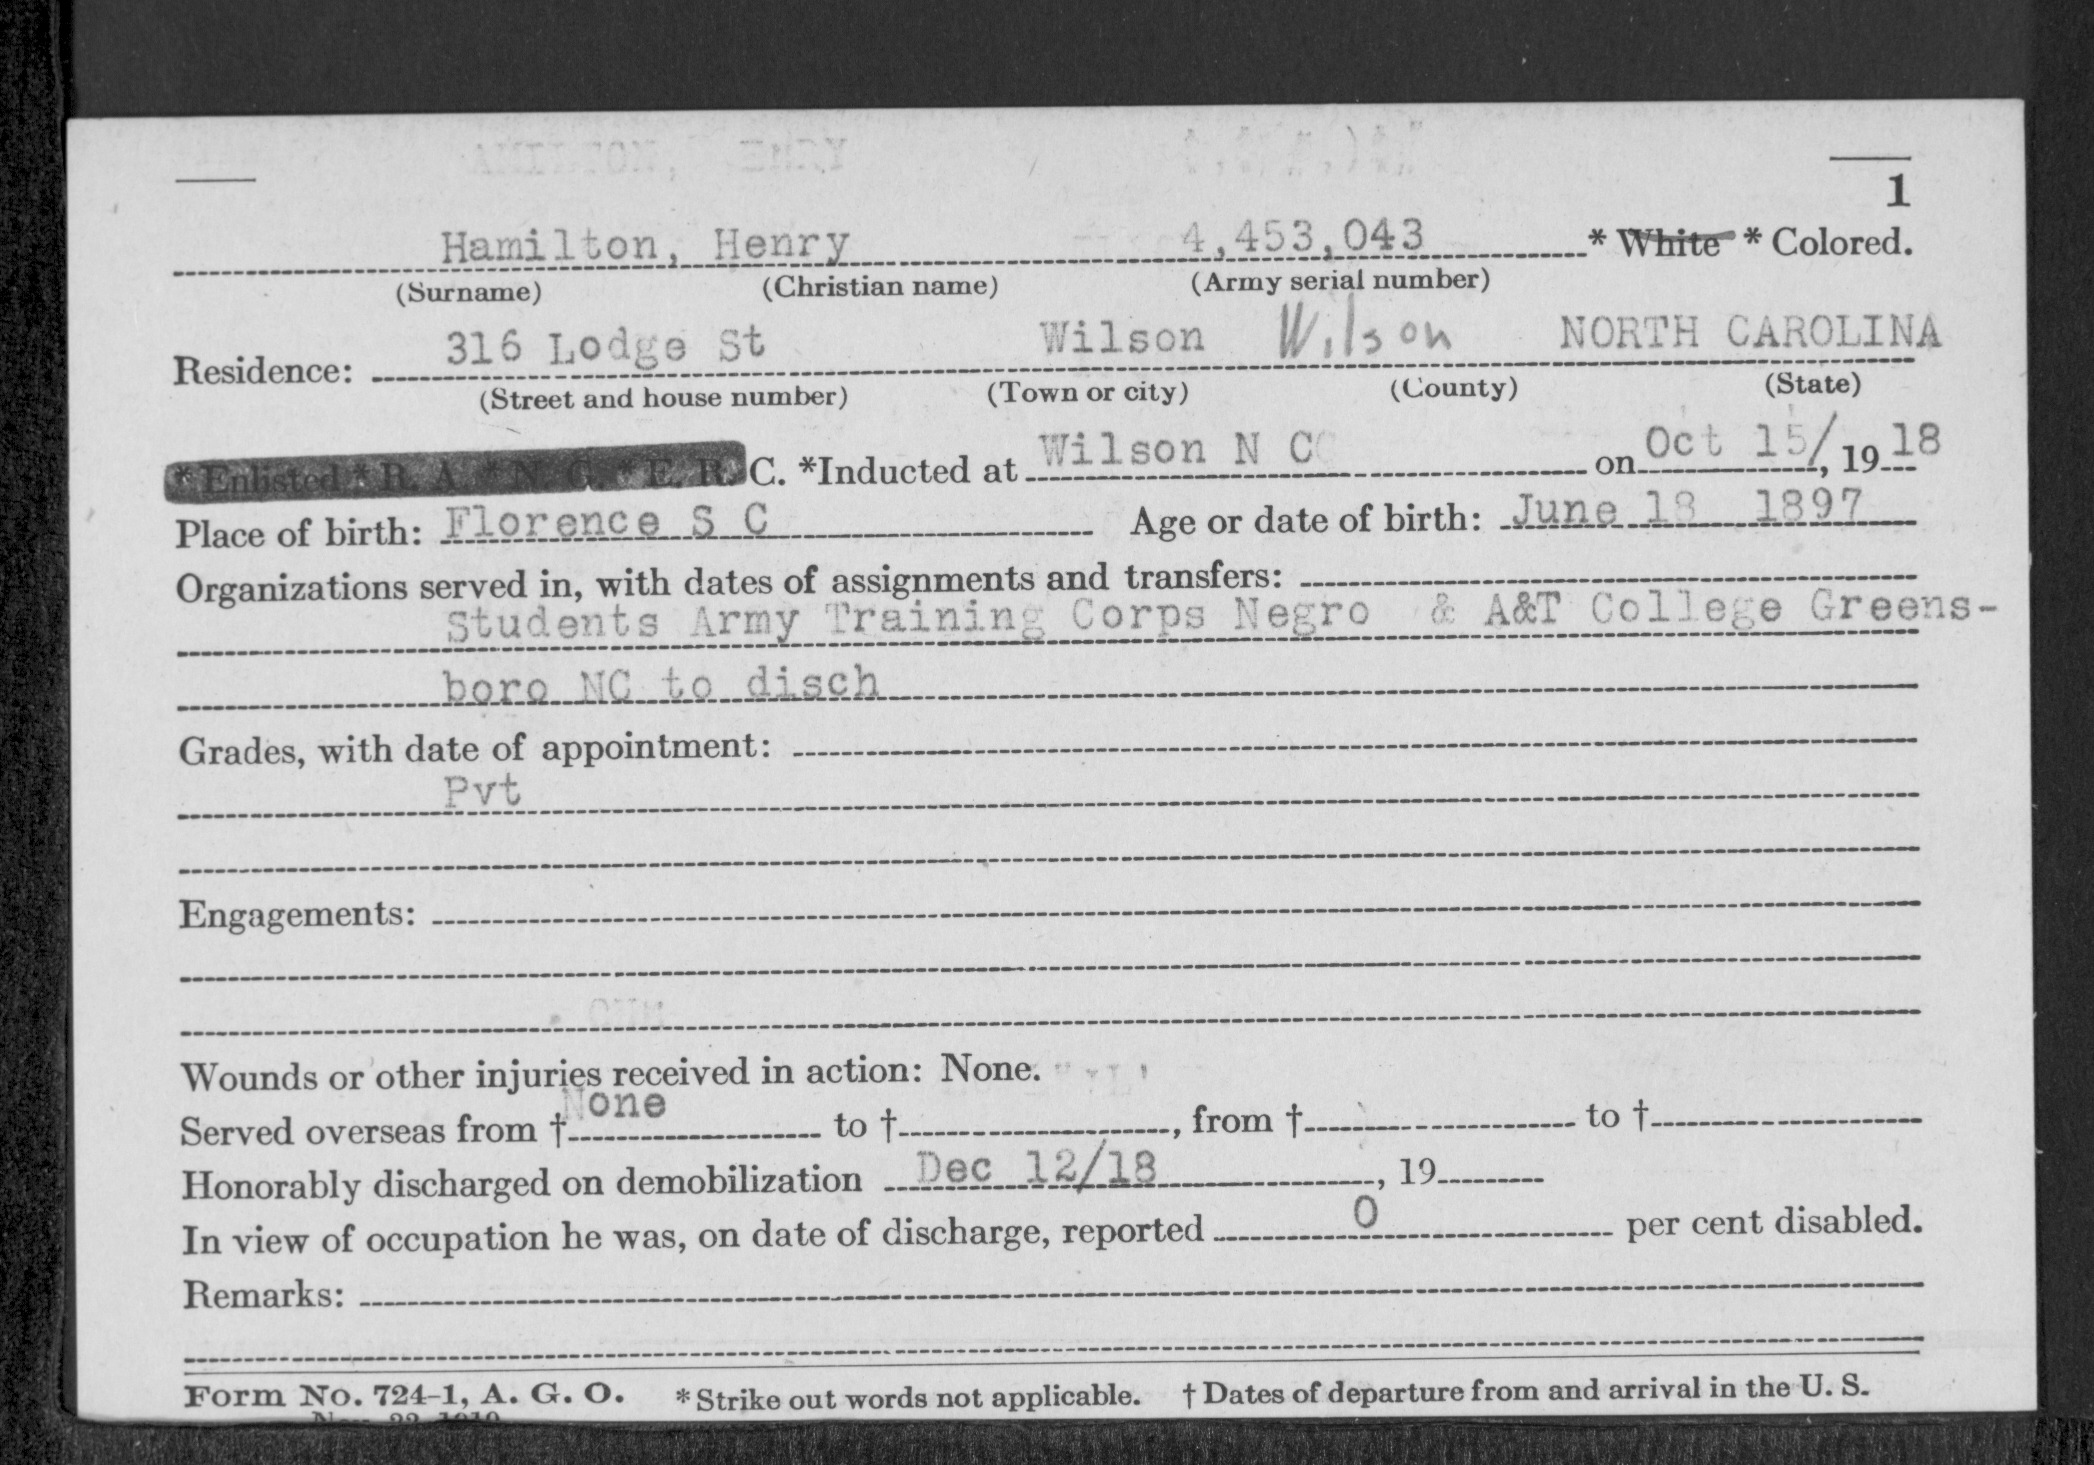 1
Hamilton, Henry 4,453,043 * White * Colored.
(Surname) (Christian name) (Army serial number)
Residence: 316 Lodge St Wilson Wilson NORTH CAROLINA
(Street and house number) (Town or city) (County) (State)
* Enlisted * R. A. * N. G. * E. R. C. *Inducted at Wilson N C on Oct 15/, 19 18
Place of birth: Florence S C Age or date of birth: June 18 1897
Organizations served in, with dates of assignments and transfers:
Students Army Training Corps Negro & A&T College Greens-
boro NC to disch
Grades, with date of appointment:
Pvt
Engagements:
Wounds or other injuries received in action: None.
Served overseas from † None to †, from † to †
Honorably discharged on demobilization Dec 12/18, 19
In view of occupation he was, on date of discharge, reported 0 per cent disabled.
Remarks:
Form No. 724-1, A. G. O. * Strike out words not applicable. † Dates of departure from and arrival in the U. S.